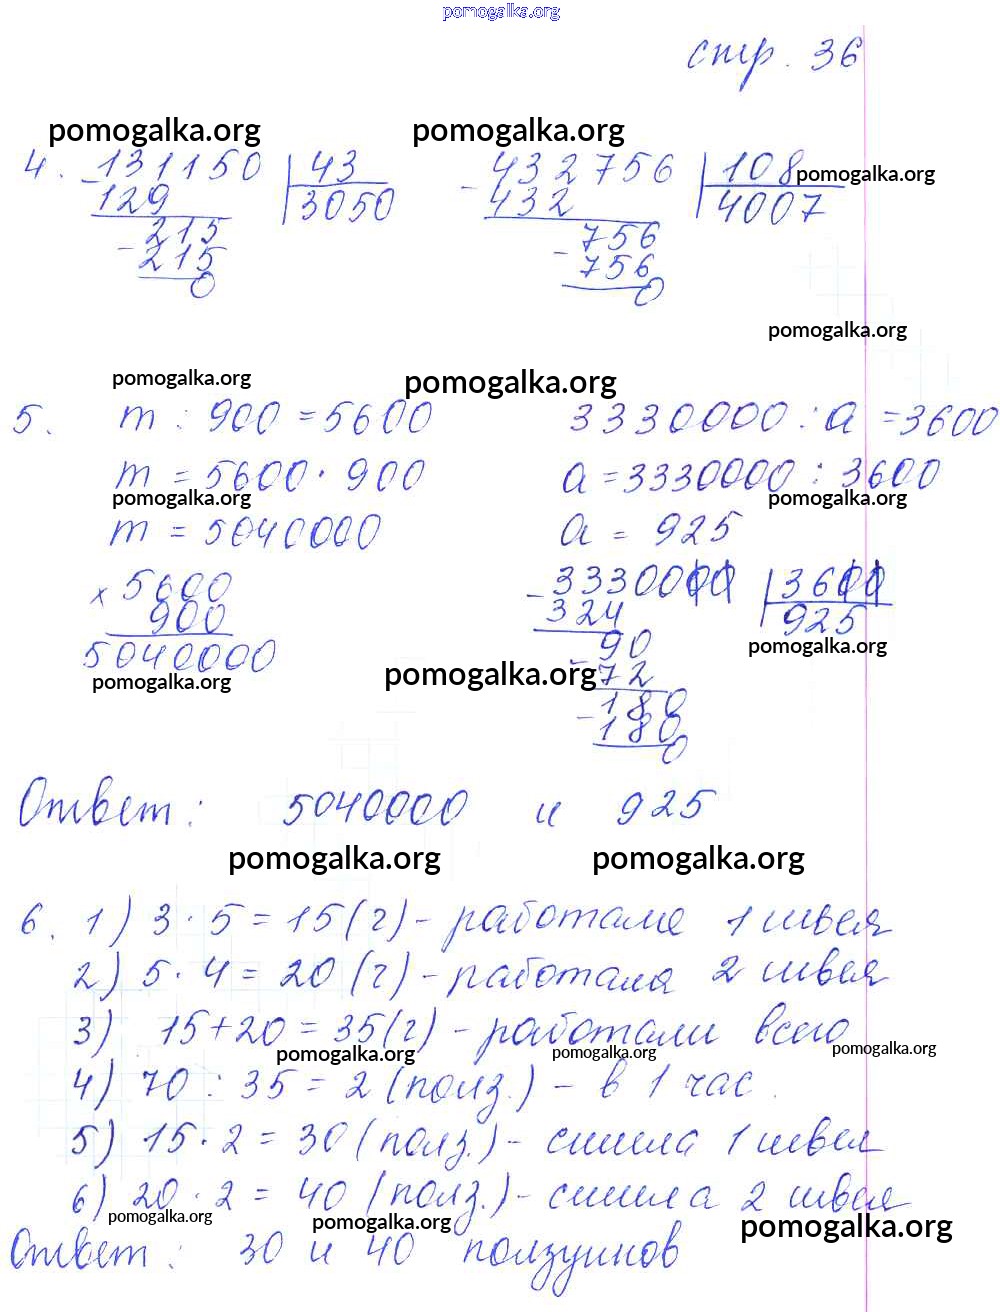 pomogalka.org
стр. 36
pomogalka.org pomogalka.org
4. 131150 | 43 432756 | 108 pomogalka.org
- 129 3050 - 432 4007
215 756
- 215 - 756
0 0
pomogalka.org
pomogalka.org pomogalka.org
5. m : 900 = 5600 3330000 : a = 3600
m = 5600 · 900 a = 3330000 : 3600
pomogalka.org pomogalka.org
m = 5040000 a = 925
x 5600 - 3330000 | 3600
900 324 925
5040000 - 90 pomogalka.org
pomogalka.org pomogalka.org 72
- 180
180
0
Ответ: 5040000 и 925
pomogalka.org pomogalka.org
6. 1) 3 · 5 = 15 (г) - работала 1 швея
2) 5 · 4 = 20 (г) - работала 2 швея
3) 15 + 20 = 35 (г) - работали всего
pomogalka.org pomogalka.org pomogalka.org
4) 70 : 35 = 2 (полз.) - в 1 час.
5) 15 · 2 = 30 (полз.) - сшила 1 швея
6) 20 · 2 = 40 (полз.) - сшила 2 швея
pomogalka.org pomogalka.org pomogalka.org
Ответ: 30 и 40 ползунков